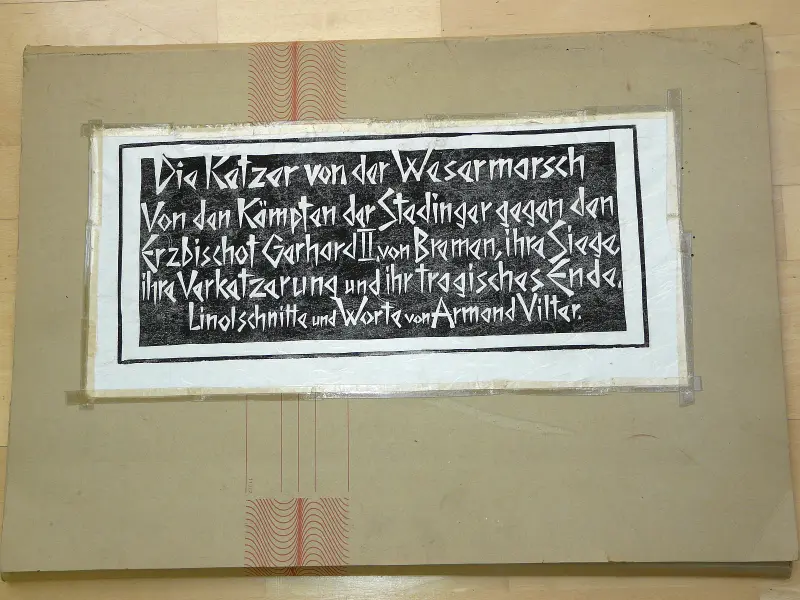 Die Ketzer von der Wesermarsch
Von den Kämpfen der Stedinger gegen den
Erzbischof Gerhard II von Bremen, ihre Siege,
ihre Verketzerung und ihr tragisches Ende.
Linolschnitte und Worte von Armand Vilter.